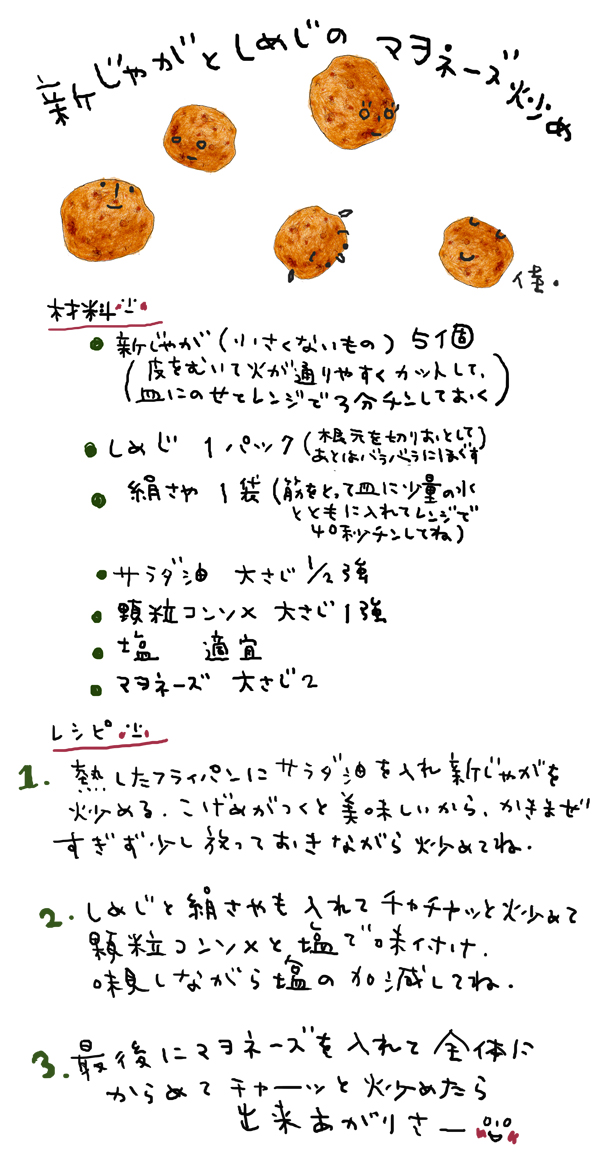 新じゃがとしめじの マヨネーズ炒め
佳.
材料
新じゃが(小さくないもの) 5個
(皮をむいて火が通りやすくカットして、
皿にのせてレンジで3分チンしておく)
しめじ 1パック(根元を切りおとして
あとはバラバラにほぐす)
絹さや 1袋(筋をとって皿に少量の水
とともに入れてレンジで
40秒チンしてね)
サラダ油 大さじ1/2強
顆粒コンソメ 大さじ1強
塩 適宜
マヨネーズ 大さじ2
レシピ
1. 熱したフライパンにサラダ油を入れ新じゃがを
炒める. こげめがつくと美味しいから、かきまぜ
すぎず少し放っておきながら炒めてね.
2. しめじと絹さやも入れてチャチャッと炒めて
顆粒コンソメと塩で味付け.
味見しながら塩の加減してね.
3. 最後にマヨネーズを入れて全体に
からめてチャーッと炒めたら
出来あがりさー